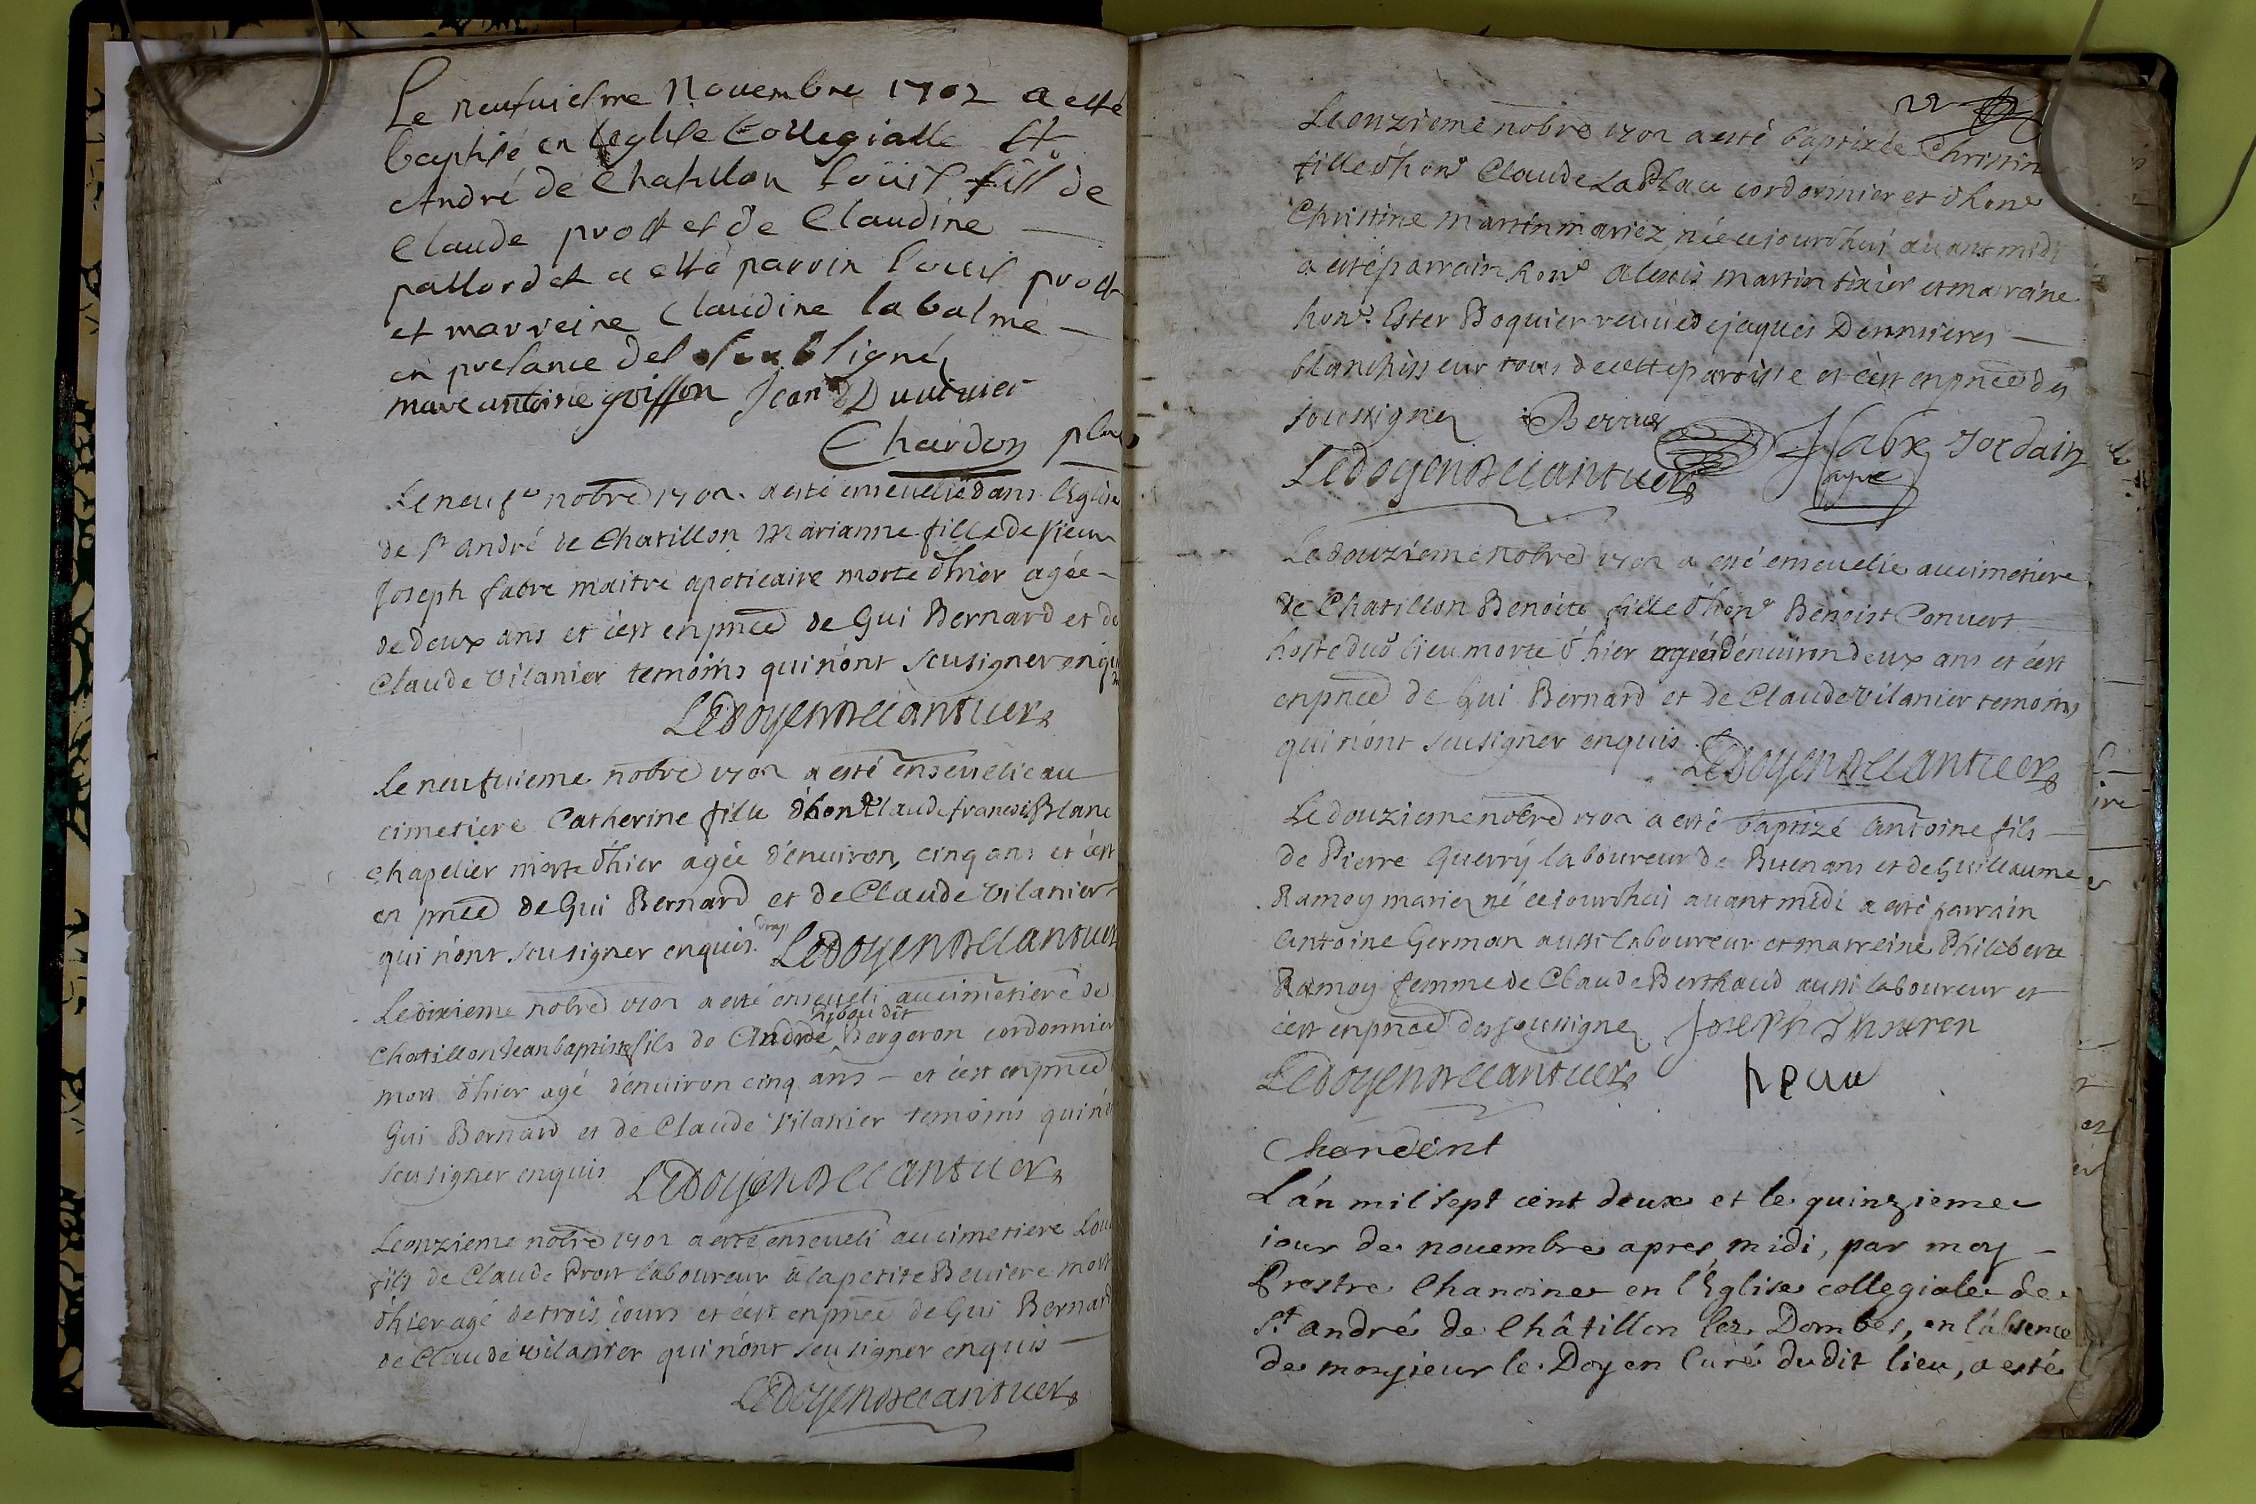 Le neufuiesme Nouembre 1702 a esté
baptisé en leglise Collegialle St
André de Chatillon Loüis fils de
Claude prost et de Claudine
pallordet a esté parrin Louis prost
et marreine Claudine labalme
en presance des soubsignéz
marc antoine goiffon Jean Duuiuier
Chardon
Le neufe nobre 1702 a esté enseuelie dans l'Eglise
de st André de Chatillon Marianne fille de sieur
Joseph fabre maitre apoticaire morte d'hier agée
de deux ans et c'est en pnce de Gui Bernard et de
Claude Vilanier temoins qui n'ont sceu signer enquis
Le doyen Decantuer
Le neufuieme nobre 1702 a esté enseuelie au
cimetiere Catherine fille d'hone Claude francois Blanc
chapelier morte d'hier agée d'enuiron cinq ans et c'est
en pnce de Gui Bernard et de Claude Vilanier
qui n'ont sceu signer enquis Le doyen Decantuer
Le dixieme nobre 1702 a esté enseueli au cimetiere de
Chatillon Jean baptiste fils de André Bergeron cordonnier
mort d'hier agé d'enuiron cinq ans et c'est en pnce
Gui Bernard et de Claude Vilanier temoins qui n'
sceu signer enquis Le doyen Decantuer
Le onzieme nobre 1702 a esté enseueli au cimetiere Lou
fils de Claude Prost laboureur a la petite Beuiere mort
d'hier agé de trois iours et c'est en pnce de Gui Bernard
de Claude vilanier qui n'ont sceu signer enquis
Le doyen Decantuer
22
Le onzieme nobre 1702 a esté baptizée Christin
fille d'hone Claude La Place cordonnier et d'hone
Christine Martin mariez née ceiourd'hui auant midi
a esté parrain hone Alexis Martin tixier et marreine
hone Ester Boquier veuue de jaques
blanchisseur tous de cette paroisse et c'est en pnce des
soussignez Berruer
Le doyen Decantuer Fabre Jordain
Le douzieme nobre 1702 a esté enseuelie au cimetiere
de Chatillon Benoite fille d'hone Benoist Conuert
hoste dud lieu morte d'hier agée d'enuiron deux ans et c'est
en pnce de Gui Bernard et de Claude Vilanier temoins
qui n'ont sceu signer enquis Le doyen Decantuer
Le douzieme nobre 1702 a esté baptizé Antoine fils
de Pierre Querry laboureur de Buenans et de Guillaume
Ramoy mariez né ceiourd'hui auant midi a esté parrain
Antoine German aussi laboureur et marreine Philiberte
Ramoy femme de Claude Berthaud aussi laboureur et
c'est en pnce des soussignez Joseph
Le doyen Decantuer
L'an mil sept cent deux et le quinzieme
iour de nouembre apres midi, par moy
Prestre Chanoine en l'Eglise collegiale de
St André de Châtillon lez Dombes, en l'absence
de monsieur le Doyen Curé dudit lieu, a esté